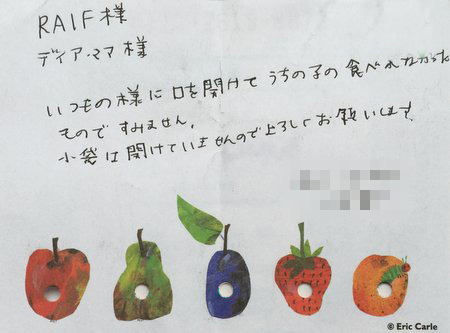 RAIF様
ディア・ママ様
いつもの様に口を開けてうちの子の食べれなかった
ものですみません。
小袋は開けていませんので上ろしくお願いします
© Eric Carle